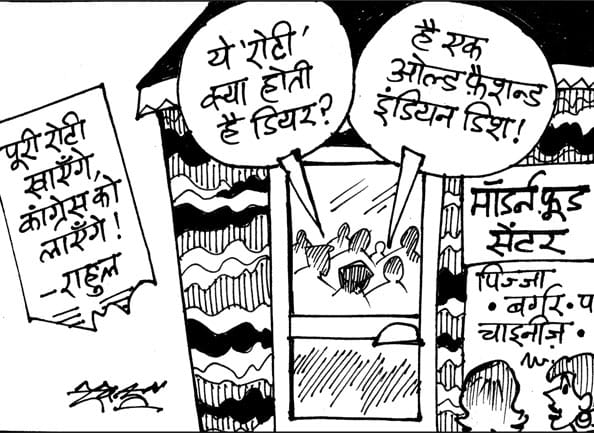 पूरी रोटी
खाएँगे,
कांग्रेस को
लाएँगे!
-राहुल
ये 'रोटी'
क्या होती
है डियर?
है एक
ओल्ड फ़ैशन्ड
इंडियन डिश!
मॉडर्न फ़ूड
सेंटर
पिज्जा
· बर्गर · प
चाइनीज़ ·